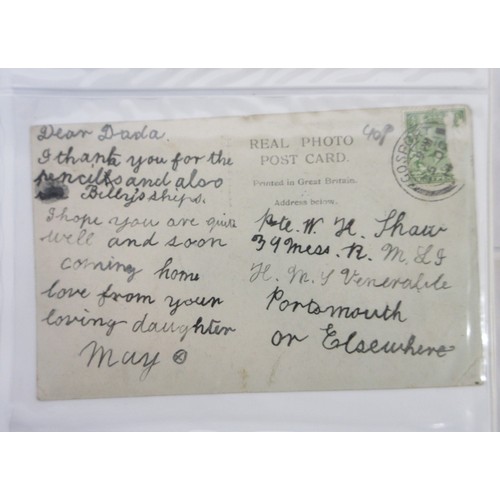 Dear Dada.
I thank you for the
pencils and also
Billy's ships.
I hope you are quite
well and soon
coming home
love from your
loving daughter
May
REAL PHOTO
POST CARD.
Printed in Great Britain.
Address below.
40p
GOSPORT
Pte. W. H. Shaw
39 Mess. R. M. L I
H. M. S Venerable
Portsmouth
or Elsewhere